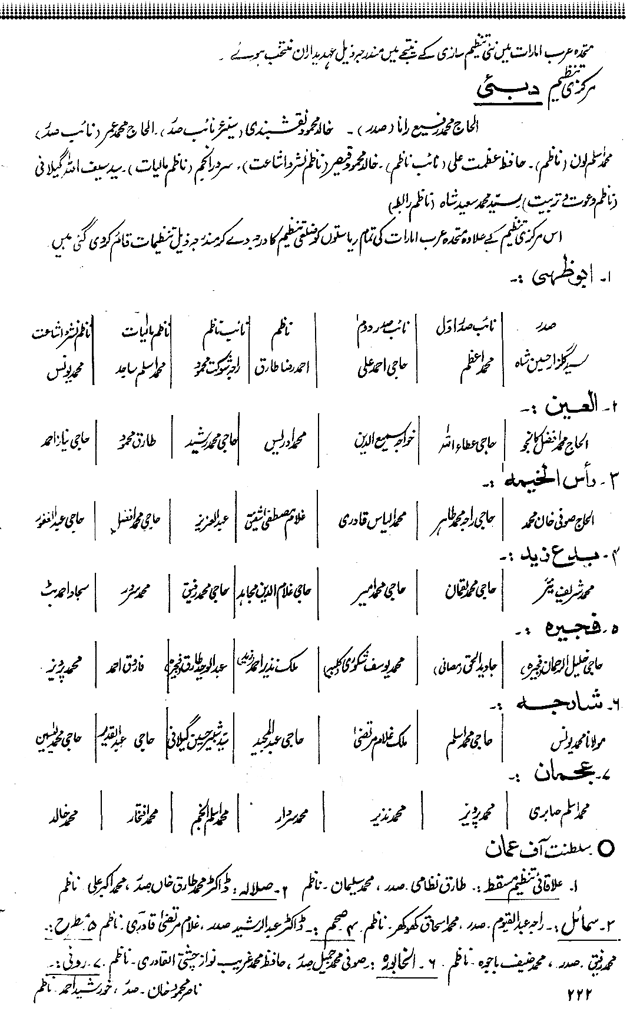 متحدہ عرب امارات میں نئی تنظیم سازی کے نتیجے میں مندرجہ ذیل عہدیداران منتخب ہوئے۔
مرکزی تنظیم دبئی
الحاج محمد رفیع رانا (صدر)۔ خالد محمود نقشبندی (سینئر نائب صدر)۔ الحاج محمد عمر (نائب صدر)
محمد اسلم لون (ناظم)۔ حافظ عظمت علی (نائب ناظم)۔ خالد محمود قیصر (ناظم نشر و اشاعت)، سرور انجم (ناظم مالیات)۔ سید سیف اللہ گیلانی
(ناظم دعوت و تربیت) سید محمد سعید شاہ (ناظم رابطہ)
اس مرکزی تنظیم کے علاوہ متحدہ عرب امارات کی تمام ریاستوں کو ضلعی تنظیم کا درجہ دے کر مندرجہ ذیل تنظیمات قائم کر دی گئی ہیں
۱۔ ابوظہبی :-
صدر | نائب صدر اوّل | نائب صدر دوم | ناظم | نائب ناظم | ناظم مالیات | ناظم نشر و اشاعت
سید گلزار حسین شاہ | محمد اعظم | حاجی احمد علی | احمد رضا طارق | راجہ شوکت محمود | محمد اسلم ساجد | محمد یونس
۲۔ العین :-
الحاج محمد افضل کانجو | حاجی عطاء اللہ | خواجہ سمیع الدین | محمد ادریس | حاجی محمد رشید | طارق محمود | حاجی نیاز احمد
۳۔ راس الخیمہ :-
الحاج صوفی خان محمد | حاجی راجہ محمد طاہر | محمد الیاس قادری | غلام مصطفیٰ | عبدالعزیز | حاجی محمد افضل | حاجی عبدالغفور
۴۔ بدع زید :-
محمد شریف | حاجی محمد لقمان | حاجی محمد امیر | حاجی غلام الدین مجاہد | حاجی محمد رفیق | محمد سرور | سجاد احمد بٹ
۵۔ فجیرہ :-
حاجی خلیل الرحمان (فجیرہ) | جاوید الحق | محمد یوسف | ملک نذیر احمد | عبدالوحید طارق (فجیرہ) | فاروق احمد | محمد پرویز
۶۔ شارجہ :-
مولانا محمد یونس | حاجی محمد اسلم | ملک غلام مرتضیٰ | حاجی عبدالمجید | سید شبیر حسین گیلانی | حاجی عبدالقدیم | حاجی محمد یٰسین
۷۔ عجمان :-
محمد اسلم صابری | محمد پرویز | محمد نذیر | محمد سردار | محمد اسلم انجم | محمد افتخار | محمد خالد
O سلطنت آف عمان
۱۔ علاقائی تنظیم مسقط :- طارق نظامی۔ صدر، محمد سلیمان۔ ناظم ۲۔ صلالہ : ڈاکٹر محمد طارق خاں صدر، محمد اکبر علی ناظم
۳۔ سمائل :- راجہ عبدالقیوم۔ صدر، محمد اسحاق کھوکھر۔ ناظم ۴۔ صحم :- ڈاکٹر عبدالرشید صدر، غلام مرتضیٰ قادری۔ ناظم ۵۔ مطرح :-
محمد رفیق۔ صدر، محمد حنیف باجوہ۔ ناظم۔ ۶۔ الخابورہ : صوفی محمد جمیل صدر، حافظ محمد غریب نواز چشتی القادری۔ ناظم۔ ۷۔ روئی :-
ناصر محمود خان۔ صدر، خورشید احمد۔ ناظم
۲۲۲